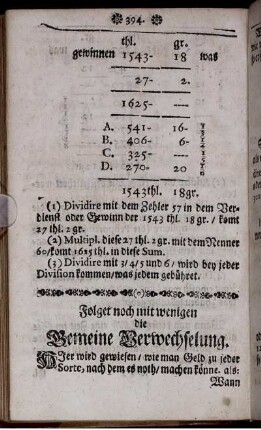 394.
thl. gr.
gewinnen 1543- 18 was
27- 2.
1625- ----
A. 541- 16-
B. 406- 6-
C. 325- ----
D. 270- 20
1543thl. 18gr.
(1) Dividire mit dem Zehler 57 in dem Ver-
dienst oder Gewinn der 1543 thl. 18 gr. / komt
27 thl. 2gr.
(2) Multipl. diese 27 thl. 2gr. mit dem Nenner
60/ komt 1625 thl. in diese Sum.
(3) Dividire mit 3/4/5 und 6/ wird bey jeder
Division kommen/ was jedem gebühret.
Folget noch mit wenigen
die
Gemeine Verwechselung.
HIer wird gewiesen/ wie man Geld zu jeder
Sorte, nach dem es noth/ machen könne. als:
Wann